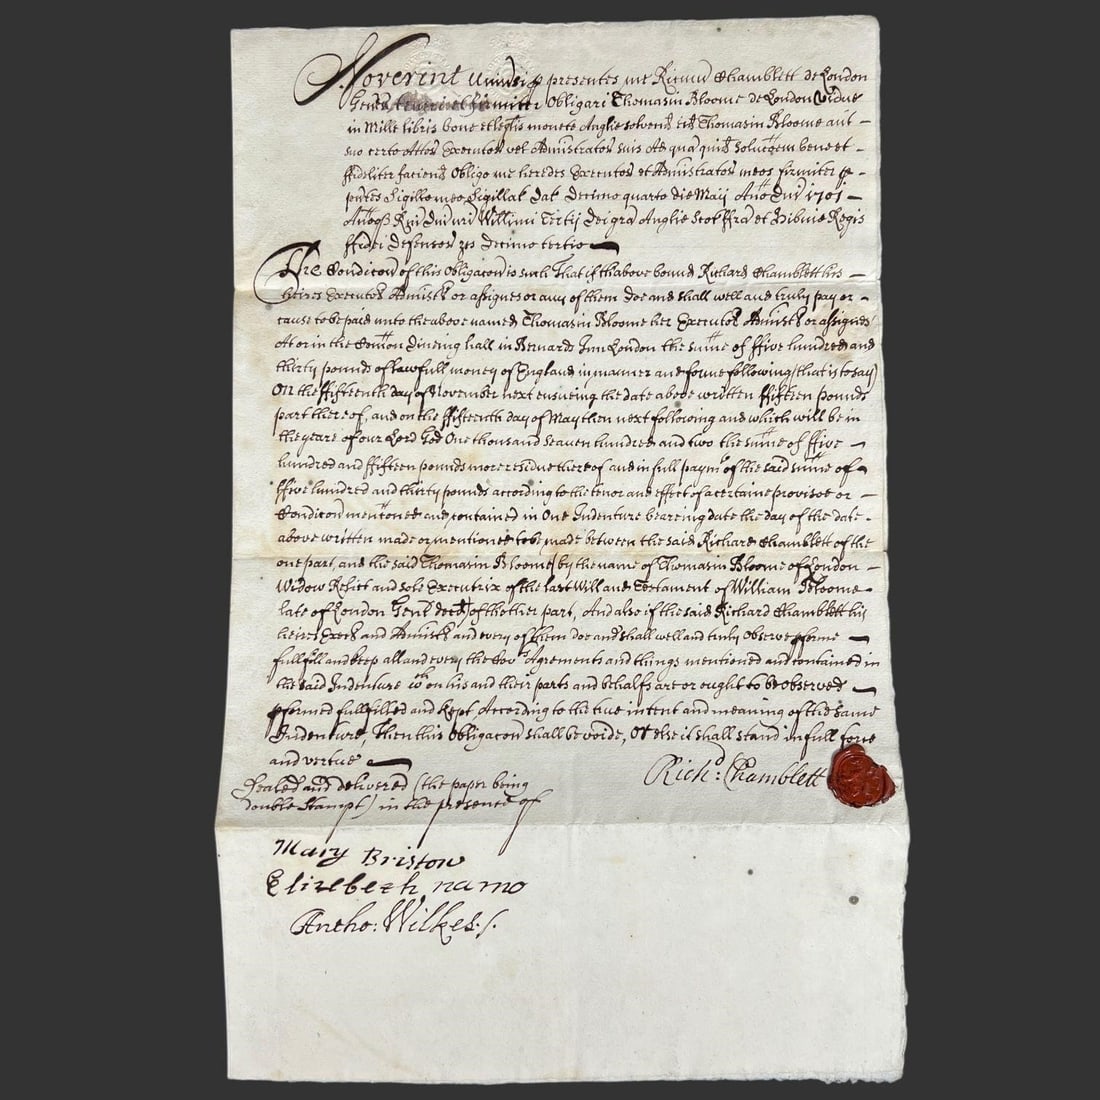 Noverint Univsi p presentes me Ricum Chamblett de London
Gen teneri et firmiter Obligari Thomasin Bloome de London Vidue
in Mille libris bone et legtis monete Anglie solvend eid Thomasin Bloome aut -
suo certo Attor Executor vel Administrator suis Ad qua quid Soluconem bene et -
ffideliter faciend Obligo me heredes Executor et Administrator meos firmiter p -
psentes Sigillo meo Sigillat Dat Decimo quarto die Maij Ano Dni 1701 -
Annoq Rni Dni nri Willimi Tertij Dei gra Anglie Scot ffra et Hibnie Regis
ffidei defensor &c Decimo tertio
The Condicon of this Obligacon is such That if th above bound Richard Chamblett his -
heires Executors Administrs or assignes or any of them doe and shall well and truly pay or -
cause to be paid unto the above named Thomasin Bloome her Executors Administrs or assignes
At or in the Comon Dineing hall in Bernards Inn London the sume of ffive hundred and
thirty pounds of lawfull money of England in manner and forme following (that is to say)
On the ffifteenth day of November next ensueing the date above written ffifteen pounds
part thereof, and on the ffifteenth day of May then next following and which will be in
the yeare of our Lord God One thousand Seaven hundred and two the sume of ffive -
hundred and ffifteen pounds more residue thereof and in full paymt of the said sume of -
ffive hundred and thirty pounds according to the tenor and effect of a certaine provisoe or -
Condicon mentoned and contained in One Indenture beareing date the day of the date -
above written made or mentioned to be made between the said Richard Chamblett of the
one part, and the said Thomasin Bloome (by the name of Thomasin Bloome of London -
Widow Relict and sole Executrix of the last Will and Testament of William Bloome -
late of London Gent decd) of th other part, And also if the said Richard Chamblett his
heires Execrs and Administrs and every of them doe and shall well and truly Observe pforme -
fullfill and keep all and every the Covts Agreements and things mentioned and contained in
the said Indenture wch on his and their parts and behalfs are or ought to be Observed -
pformed fullfilled and kept According to the true intent and meaning of the same
Indenture, Then this Obligacon shall be voide, Or else it shall stand in full force
and vertue
Richd: Chamblett
Sealed and delivered (the paper being
double Stampt) in the presence of
Mary Bristow
Elizebeth namo
Antho: Wilkes ./.